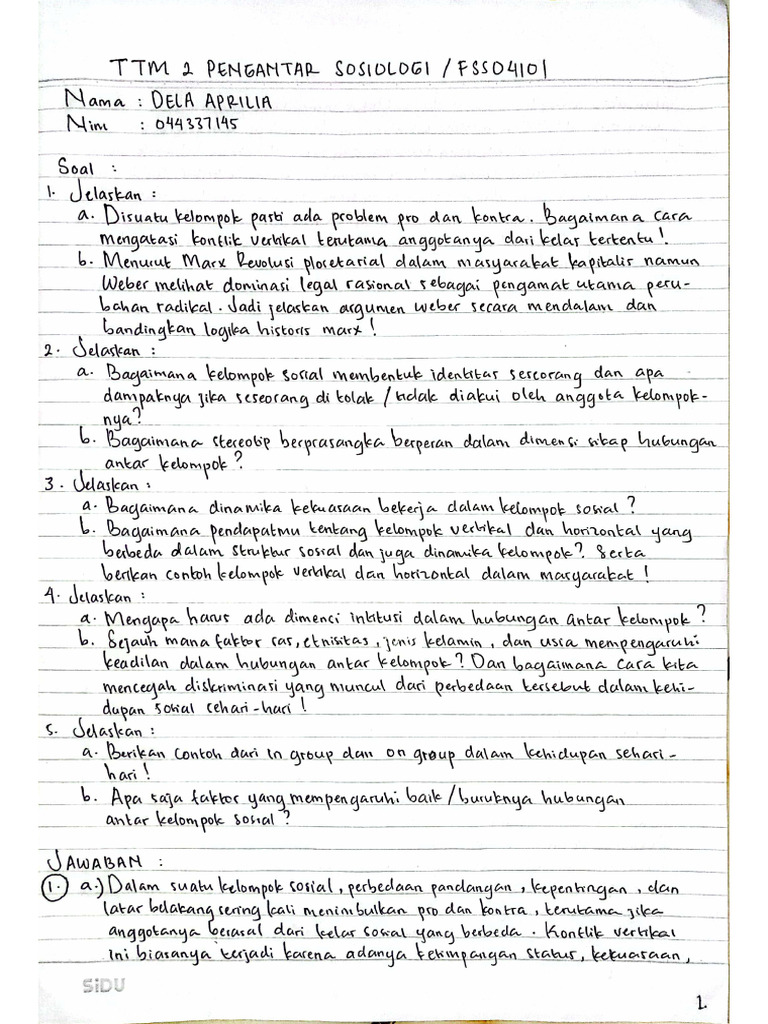 TTM 2 PENGANTAR SOSIOLOGI / FSSO4101
Nama : DELA APRILIA
Nim : 044337145
Soal :
1. Jelaskan :
a. Disuatu kelompok pasti ada problem pro dan kontra. Bagaimana cara
mengatasi konflik vertikal terutama anggotanya dari kelas tertentu!
b. Menurut Marx Revolusi plocetarial dalam masyarakat kapitalis namun
Weber melihat dominasi legal rasional sebagai pengamat utama peru-
bahan radikal. Jadi jelaskan argumen weber secara mendalam dan
bandingkan logika historis marx!
2. Jelaskan :
a. Bagaimana kelompok sosial membentuk identitas seseorang dan apa
dampaknya jika seseorang di tolak / tidak diakui oleh anggota kelompok-
nya?
b. Bagaimana stereotip berprasangka berperan dalam dimensi sikap hubungan
antar kelompok?
3. Jelaskan :
a. Bagaimana dinamika kekuasaan bekerja dalam kelompok sosial?
b. Bagaimana pendapatmu tentang kelompok vertikal dan horizontal yang
berbeda dalam struktur sosial dan juga dinamika kelompok? Serta
berikan contoh kelompok vertikal dan horizontal dalam masyarakat!
4. Jelaskan :
a. Mengapa harus ada dimenci intitusi dalam hubungan antar kelompok?
b. Sejauh mana faktor ras, etnisitas, jenis kelamin, dan usia mempengaruhi
keadilan dalam hubungan antar kelompok? Dan bagaimana cara kita
mencegah diskriminasi yang muncul dari perbedaan tersebut dalam kehi-
dupan sosial sehari-hari!
5. Jelaskan :
a. Berikan contoh dari in group dan on group dalam kehidupan sehari-
hari!
b. Apa saja faktor yang mempengaruhi baik / buruknya hubungan
antar kelompok sosial?
JAWABAN :
1. a.) Dalam suatu kelompok sosial, perbedaan pandangan, kepentingan, dan
latar belakang sering kali menimbulkan pro dan kontra, terutama jika
anggotanya berasal dari kelas sosial yang berbeda. Konflik vertikal
ini biasanya terjadi karena adanya ketimpangan status, kekuasaan,
SiDU
1.